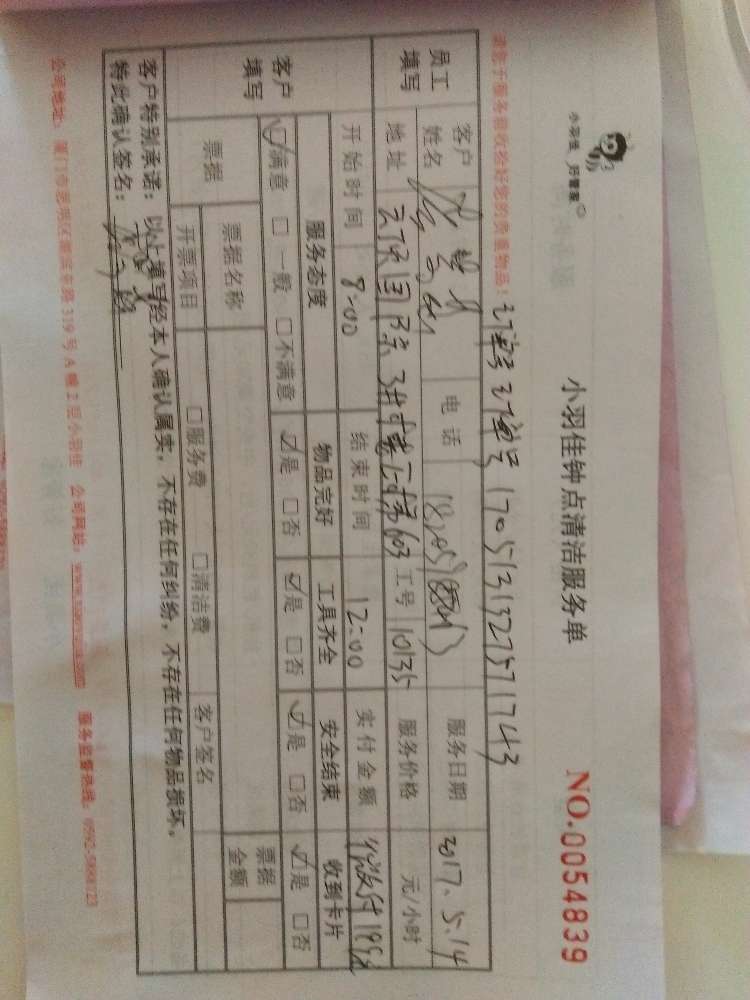 小羽佳 好管家
小羽佳钟点清洁服务单
NO.0054839
请您于服务前收拾好您的贵重物品! 订单号 订单号 1705131327571743
员工填写 客户姓名 电话 服务日期 2017.5.14
地址 3 603 工号 10135 服务价格 元/小时
客户填写 开始时间 8:00 结束时间 12:00 实付金额
服务态度 物品完好 工具齐全 安全结束 收到卡片
☑满意 □一般 □不满意 ☑是 □否 ☑是 □否 ☑是 □否 ☑是 □否
票据 票据名称 票据金额
开票项目 □服务费 □清洁费 客户签名
客户特别承诺:以上填写经本人确认属实,不存在任何纠纷,不存在任何物品损坏。
特此确认签名:
公司地址: 厦门市思明区 319号A幢2层小羽佳 公司网站: 服务监督热线: